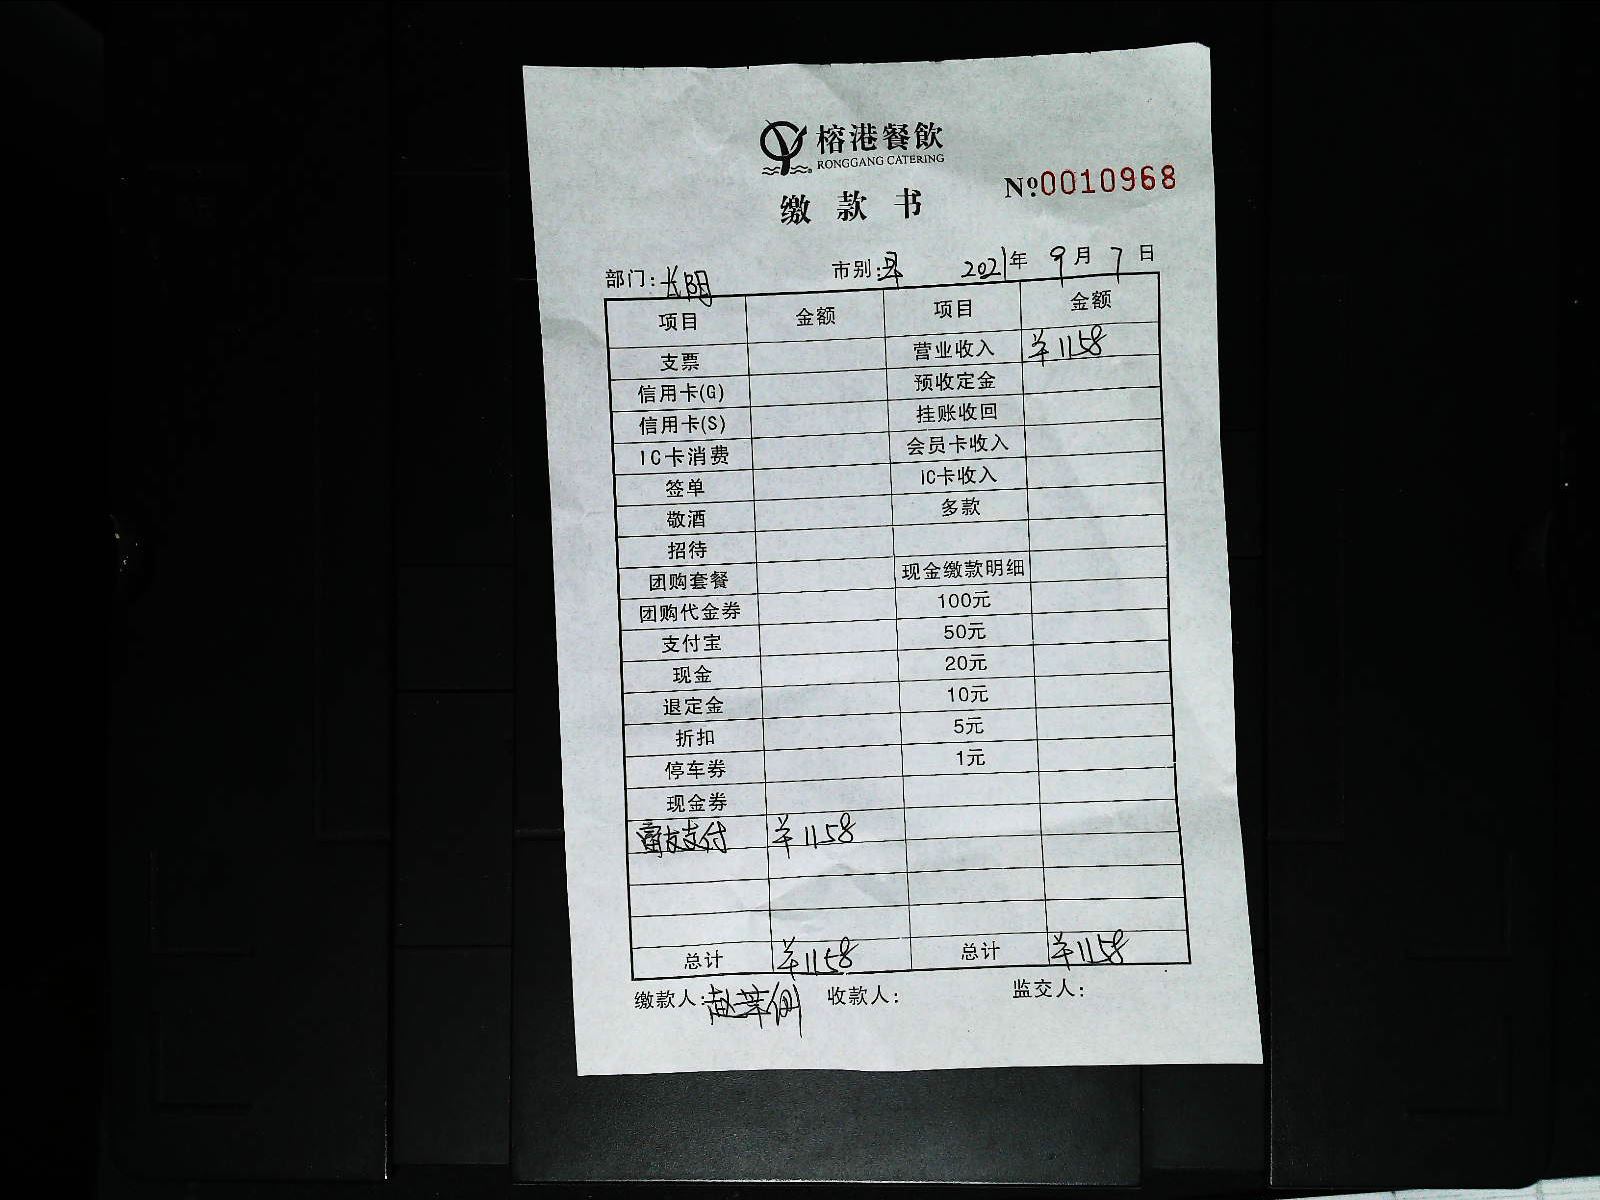 榕港餐飲
RONGGANG CATERING
缴款书
Nº0010968
部门:长阳 市别:早 2021年9月7日
项目 金额 项目 金额
支票 营业收入 ¥1158
信用卡(G) 预收定金
信用卡(S) 挂账收回
IC卡消费 会员卡收入
签单 IC卡收入
敬酒 多款
招待
团购套餐 现金缴款明细
团购代金券 100元
支付宝 50元
现金 20元
退定金 10元
折扣 5元
停车券 1元
现金券
富友支付 ¥1158
总计 ¥1158 总计 ¥1158
缴款人:赵 收款人: 监交人: